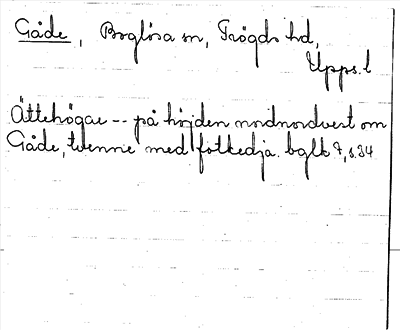 Gåde, Boglösa sn, Trögds hd,
Upps. l
Ättehögar -- på höjden nordnordvest om
Gåde, tvenne med fotkedja. bglb 7, s.34